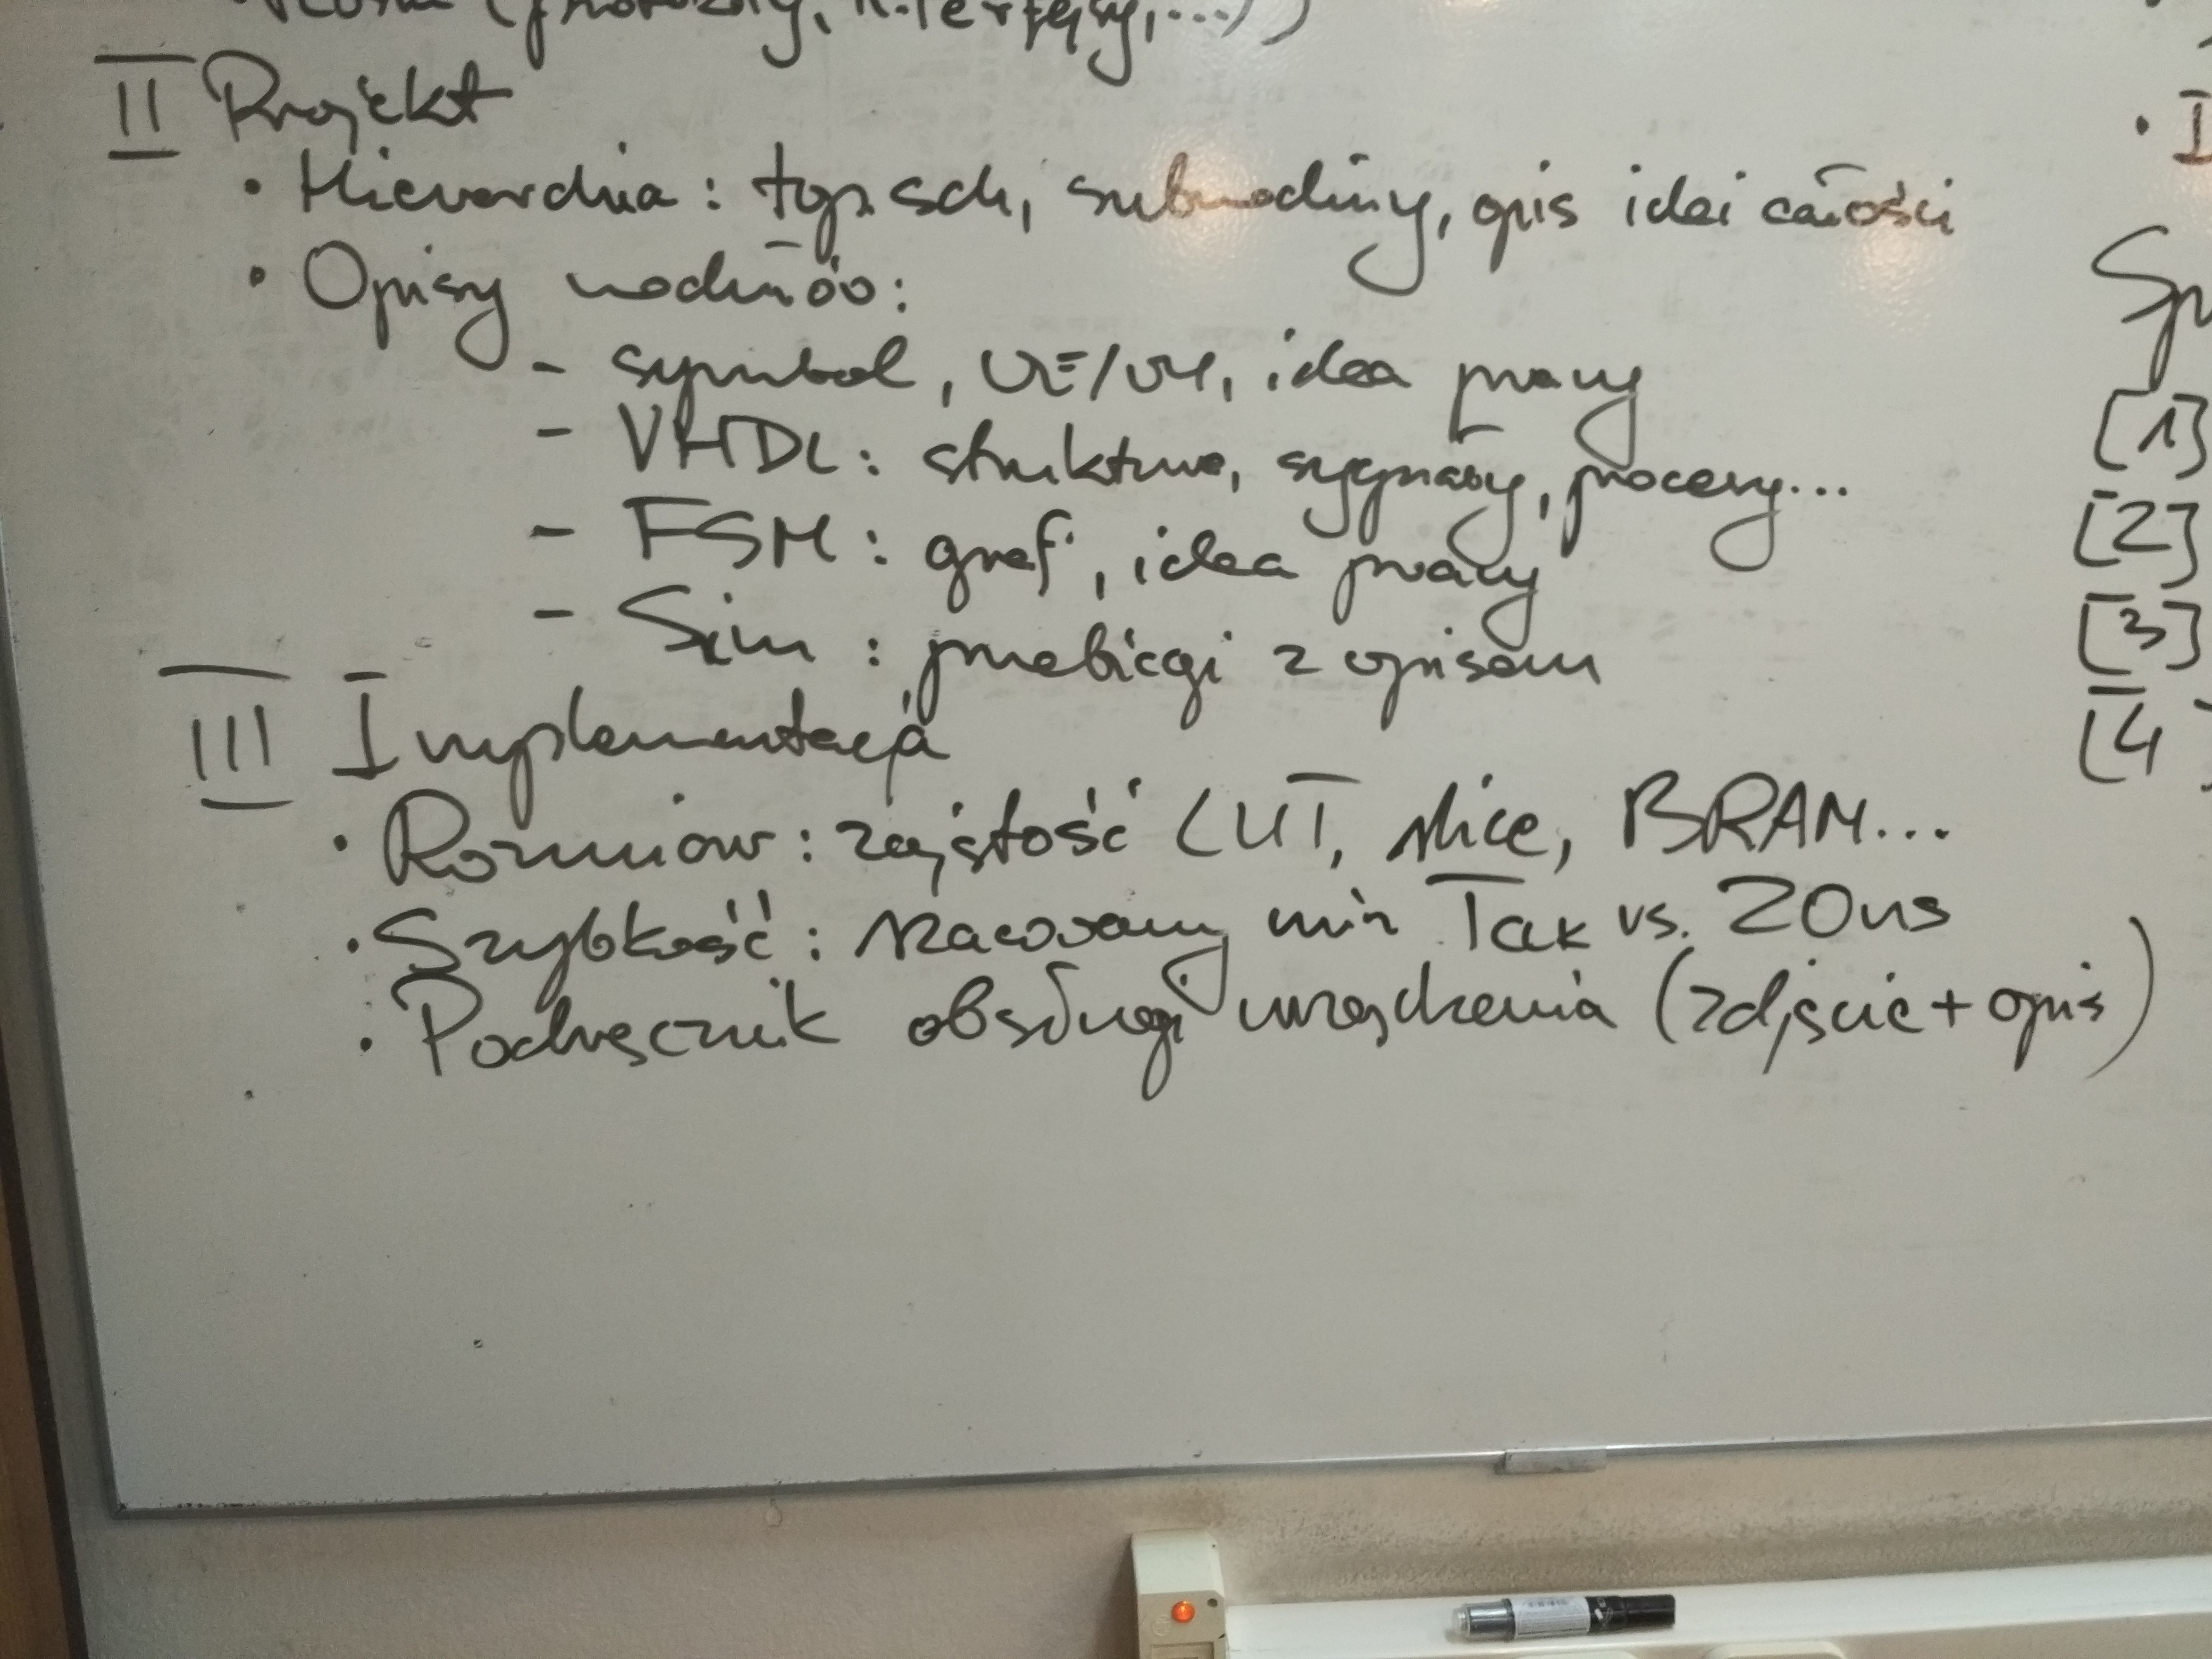 (protokoły, interfejsy,...))
II Projekt
• Hierarchia: top.sch, submoduły, opis idei całości
• Opisy modułów:
- symbol, WE/WY, idea pracy
- VHDL: struktura, sygnały, procesy...
- FSM: graf, idea pracy
- Sim: przebiegi z opisem
III Implementacja
• Rozmiar: zajętość LUT, slice, BRAM...
• Szybkość: szacowany min Tclk vs. 20ns
• Podręcznik obsługi urządzenia (zdjęcie + opis)
• I
Sp
[1]
[2]
[3]
[4